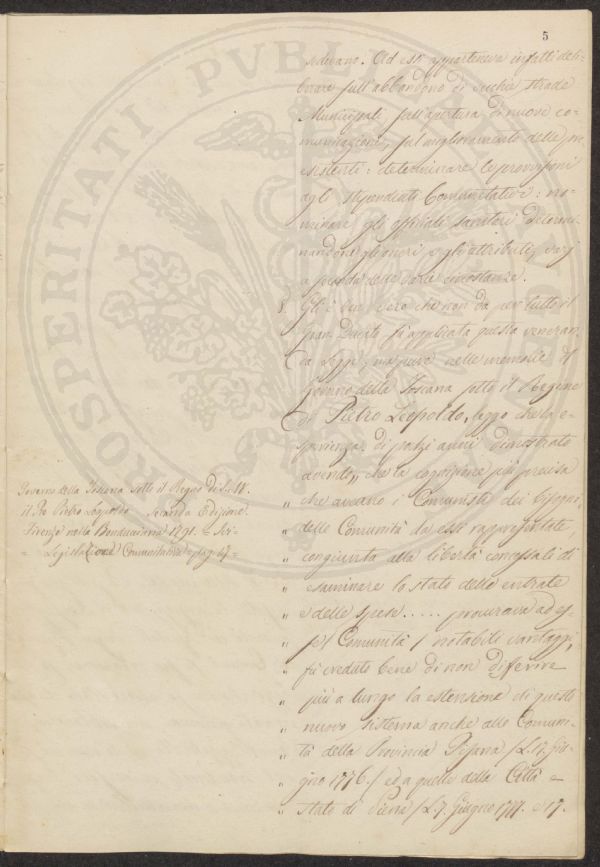 5
sedevano. Ad essi apparteneva infatti deli=
berare sull'abbandono di vecchie strade
Municipali, sull'apertura di nuove co=
municazioni, sul miglioramento delle pre
esistenti: determinare le provvisioni
agli stipendiati Comunitativi: no=
minare gli offiziali sanitari determi=
nandone gli oneri e gli attributi, varj
a seconda delle varie circostanze.
8. Gli è ben vero che non da per tutto il
Gran Ducato fu applicata questa veneran=
da Legge, ma pure nelle memorie del
Governo della Toscana sotto il Regime
di Pietro Leopoldo, leggo che la e=
sperienza di pochi anni dimostrato
avendo „ che la cognizione più precisa
„ che aveano i Comunisti dei bisogni
„ delle Comunità da essi rappresentate,
„ congiunta alla libertà concessali di
„ esaminare lo stato delle entrate
„ e delle spese ..... procurava ad es=
„ se/ Comunità / notabili vantaggi,
„ fu creduto bene di non differire
„ più a lungo la estensione di questo
„ nuovo sistema anche alle Comuni=
„ tà della Provincia Pisana / L. 17. Giu=
„ gno 1776./ ed a quelle della Città e
„ Stato di Siena / L. 7. Giugno 1777. e 17.
Governo della Toscana sotto il Regno di S. M.
il Re Pietro Leopoldo Seconda Edizione.
Firenze nella Bonducciana 1791. =
= Legislazione Comunitativa = pag. 67 =
PROSPERITATI PVBLI